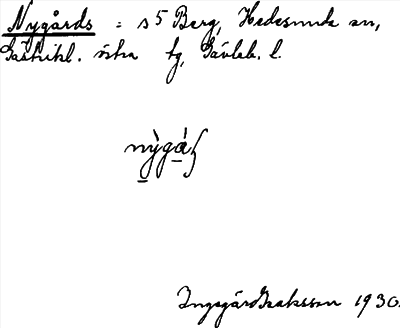 Nygårds = s 5 Berg, Hedesunda sn,
Gästrikl. östra tg, Gävleb. l.
nỳgáʂ
Ingegärd Isaksson 1930.